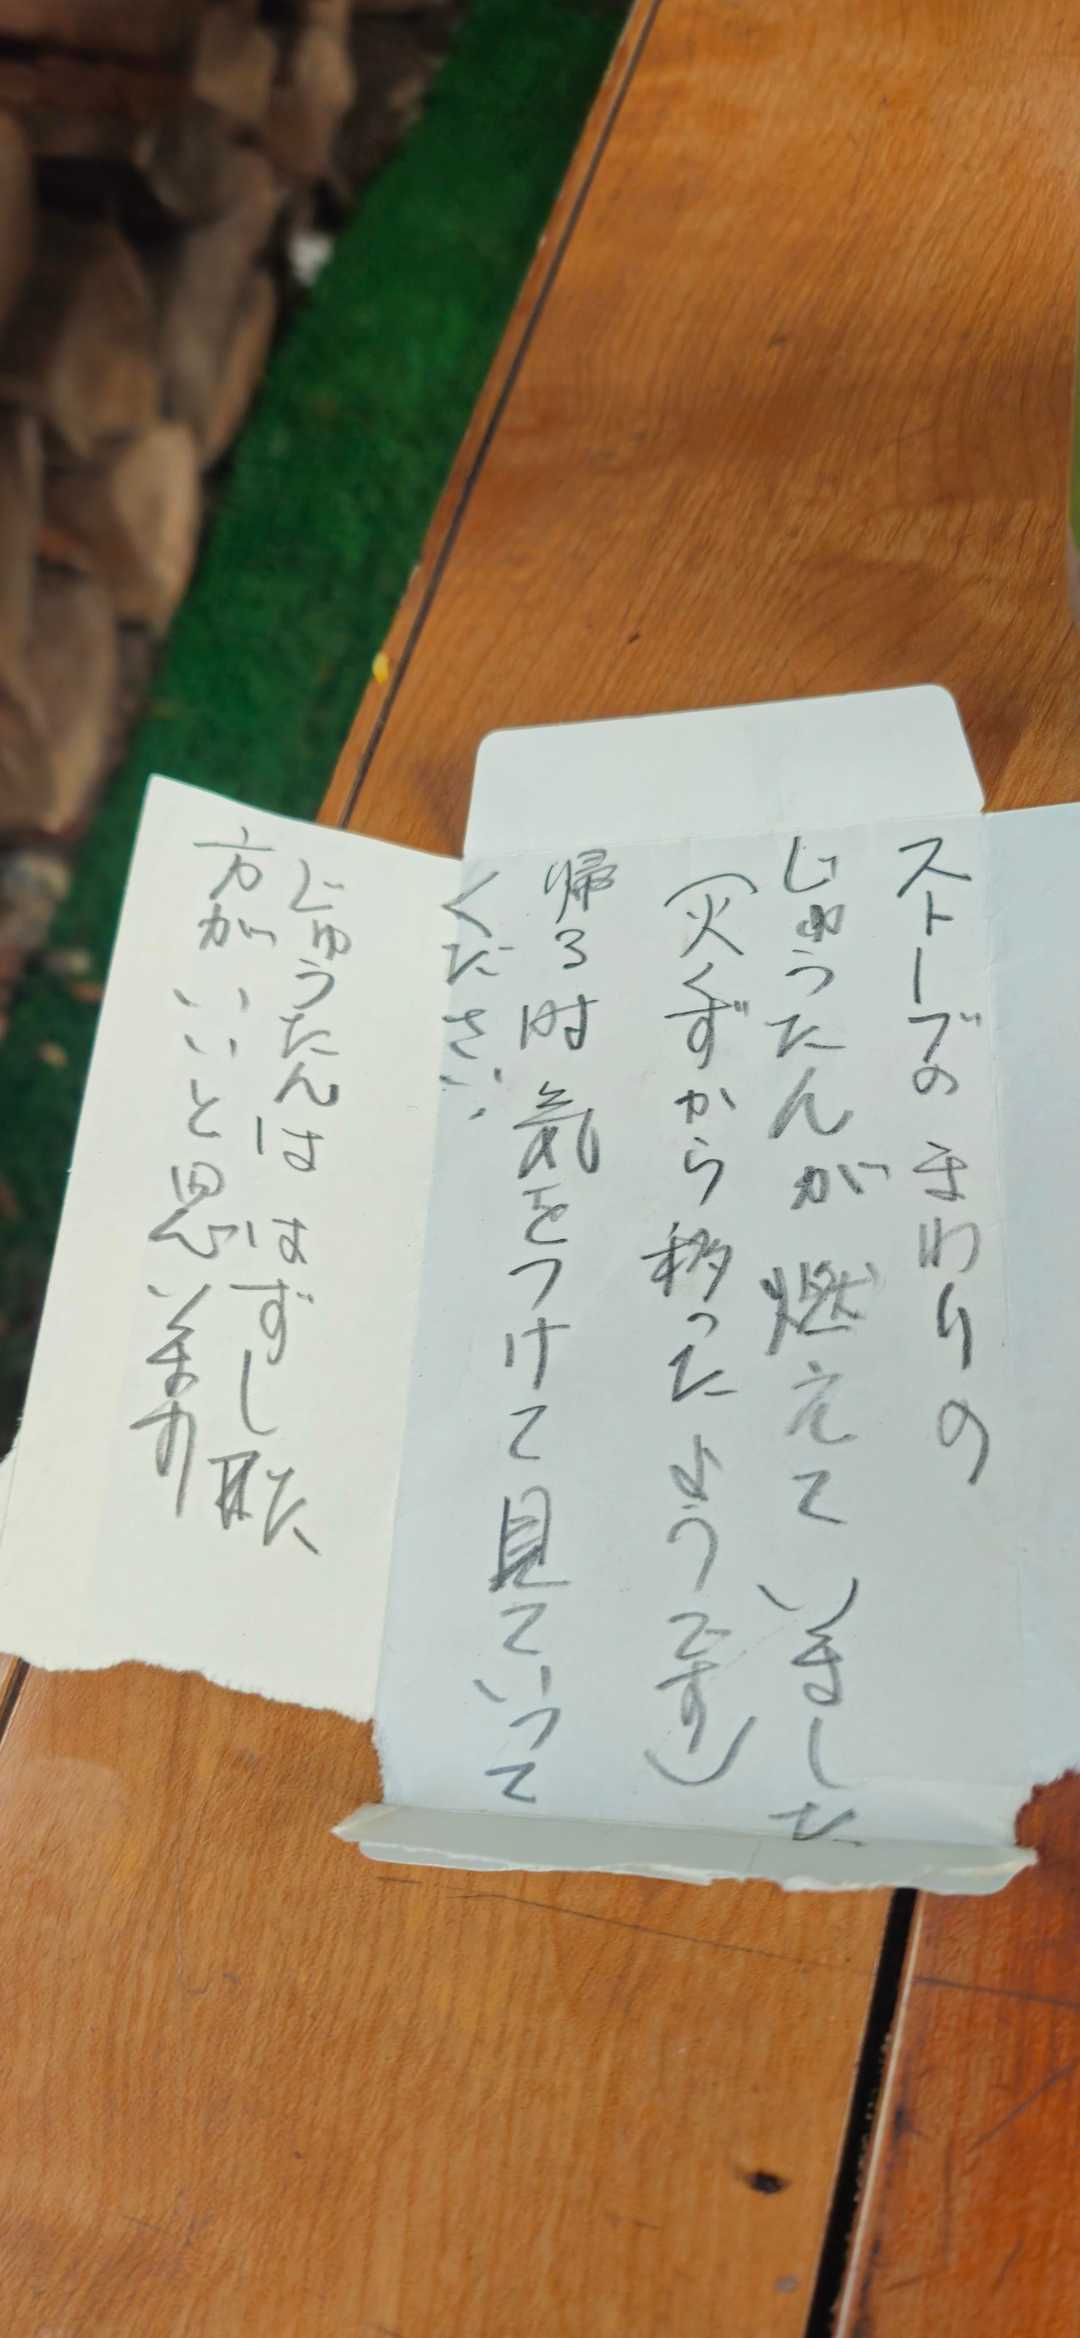 ストーブの まわりの
じゅうたんが 燃えて いました
(火くずから移ったようです)
帰る時 気をつけて見ていって
ください
じゅうたんは はずし取た
方が いいと思います